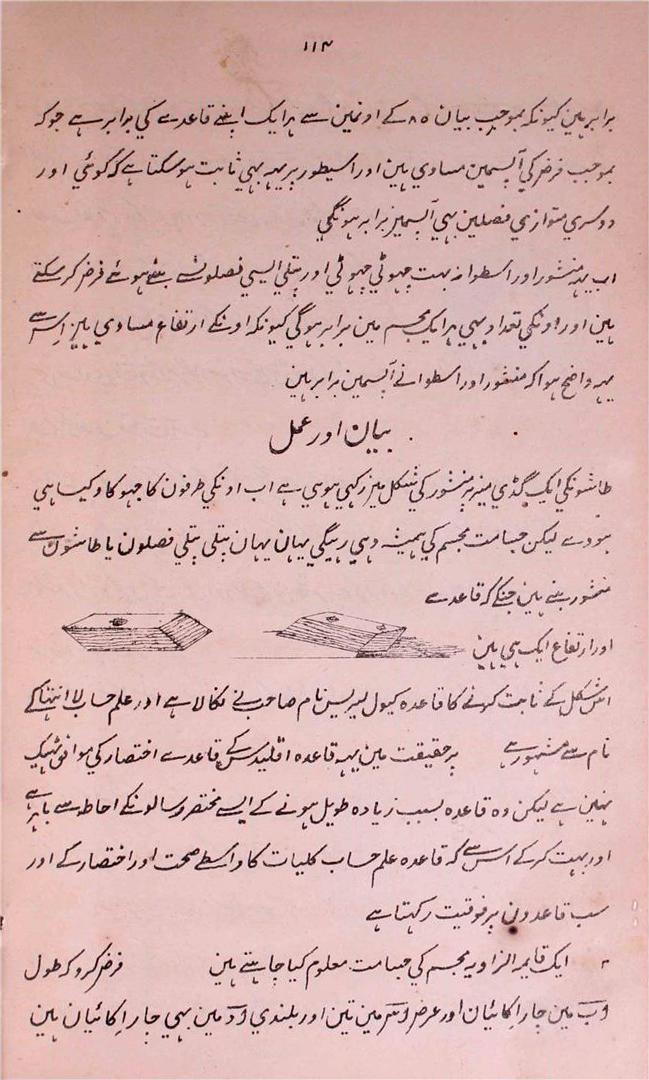 ۱۱۴
برابر ہین کیونکہ بموجب بیان ۸۵ کے اونمین سے ہر ایک اپنے قاعدے کي برابر ہے جو کہ
بموجب فرض کي آپسمین مساوي ہین اور اسیطور پر یہہ بہي ثابت ہو سکتا ہے کہ کوئي اور
دوسري متوازي فصلین بہي آپسمین برابر ہونگي
اب یہہ منشور اور اسطوانہ بہت چہوٹي چہوٹي اور پتلي ایسي فصلونسے بنے ہوئے فرض کر سکتے
ہین اور اونکي تعداد بہي ہر ایک مجسم مین برابر ہوگي کیونکہ اونکے ارتفاع مساوي ہین اس سے
یہہ واضح ہوا کہ منشور اور اسطوانے آپسمین برابر ہین
بیان اور عمل
طاشونکي ایک گڈي میز پر منشور کي شکل مین رکہي ہوئي ہے اب اونکي طرفون کا جہوکاو کیسا ہي
ہووے لیکن جسامت مجسم کي ہمیشہ وہي رہیگي یہان یہان پتلي پتلي فصلون یا طاشون سے
منشور بنے ہین جنکے کہ قاعدے
اور ارتفاع ایک ہي ہین
اس شکل کے ثابت کرنے کا قاعدہ کیول لیریس نام صاحب نے نکالا ہے اور علم حساب لا انتہا کے
نام سے مشہور ہے پر حقیقت مین یہہ قاعدہ اقلیدس کے قاعدے اختصار کي موافق ٹہیک
نہین ہے لیکن وہ قاعدہ بسبب زیادہ طویل ہونے کے ایسے مختصر رسالونکے احاطہ سے باہر ہے
اور بہت کر کے اس سے کہ قاعدہ علم حساب کلیات کا واسطے صحت اور اختصار کے اور
سب قاعدون پر فوقیت رکہتا ہے
ایک قایمہ الزاویہ مجسم کي جسامت معلوم کیا چاہتے ہین فرض کرو کہ طول
مین چار اکائیان اور عرض مین تین اور بلندي مین بہي چار اکائیان ہین